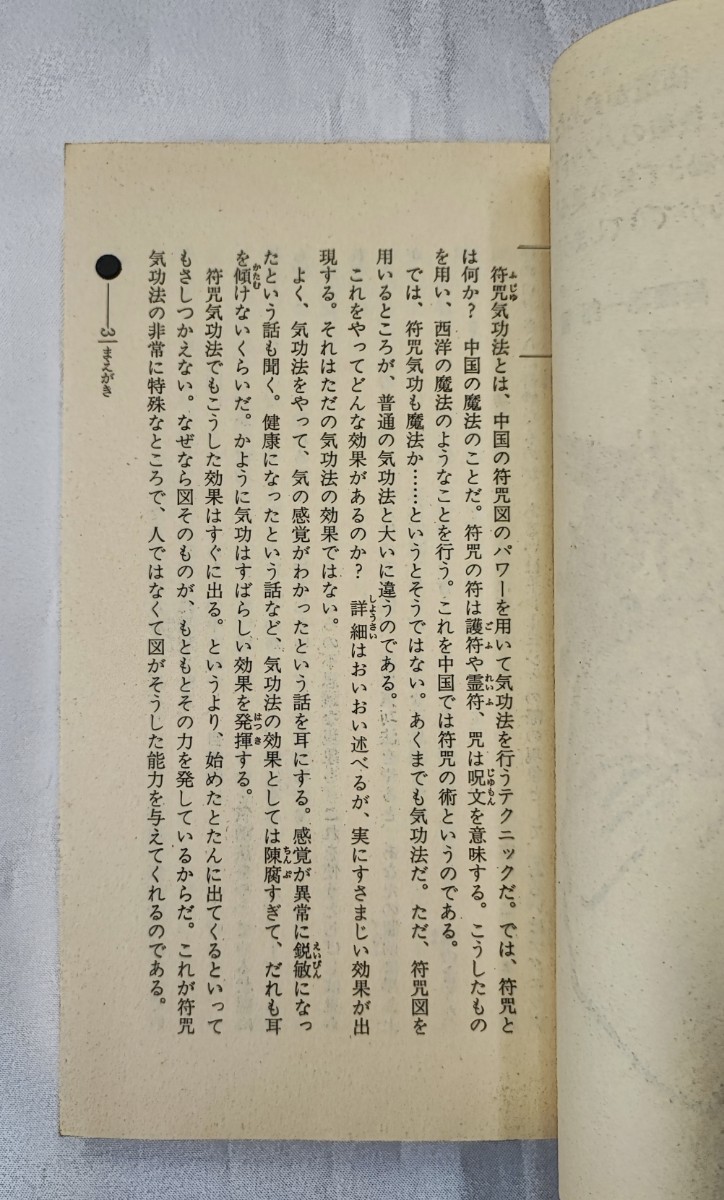 符咒気功法とは、中国の符咒図のパワーを用いて気功法を行うテクニックだ。では、符咒と
は何か？　中国の魔法のことだ。符咒の符は護符や霊符、咒は呪文を意味する。こうしたもの
を用い、西洋の魔法のようなことを行う。これを中国では符咒の術というのである。
では、符咒気功も魔法か……というとそうではない。あくまでも気功法だ。ただ、符咒図を
用いるところが、普通の気功法と大いに違うのである。
これをやってどんな効果があるのか？　詳細はおいおい述べるが、実にすさまじい効果が出
現する。それはただの気功法の効果ではない。
よく、気功法をやって、気の感覚がわかったという話を耳にする。感覚が異常に鋭敏になっ
たという話も聞く。健康になったという話など、気功法の効果としては陳腐すぎて、だれも耳
を傾けないくらいだ。かように気功はすばらしい効果を発揮する。
符咒気功法でもこうした効果はすぐに出る。というより、始めたとたんに出てくるといって
もさしつかえない。なぜなら図そのものが、もともとその力を発しているからだ。これが符咒
気功法の非常に特殊なところで、人ではなくて図がそうした能力を与えてくれるのである。
3 まえがき